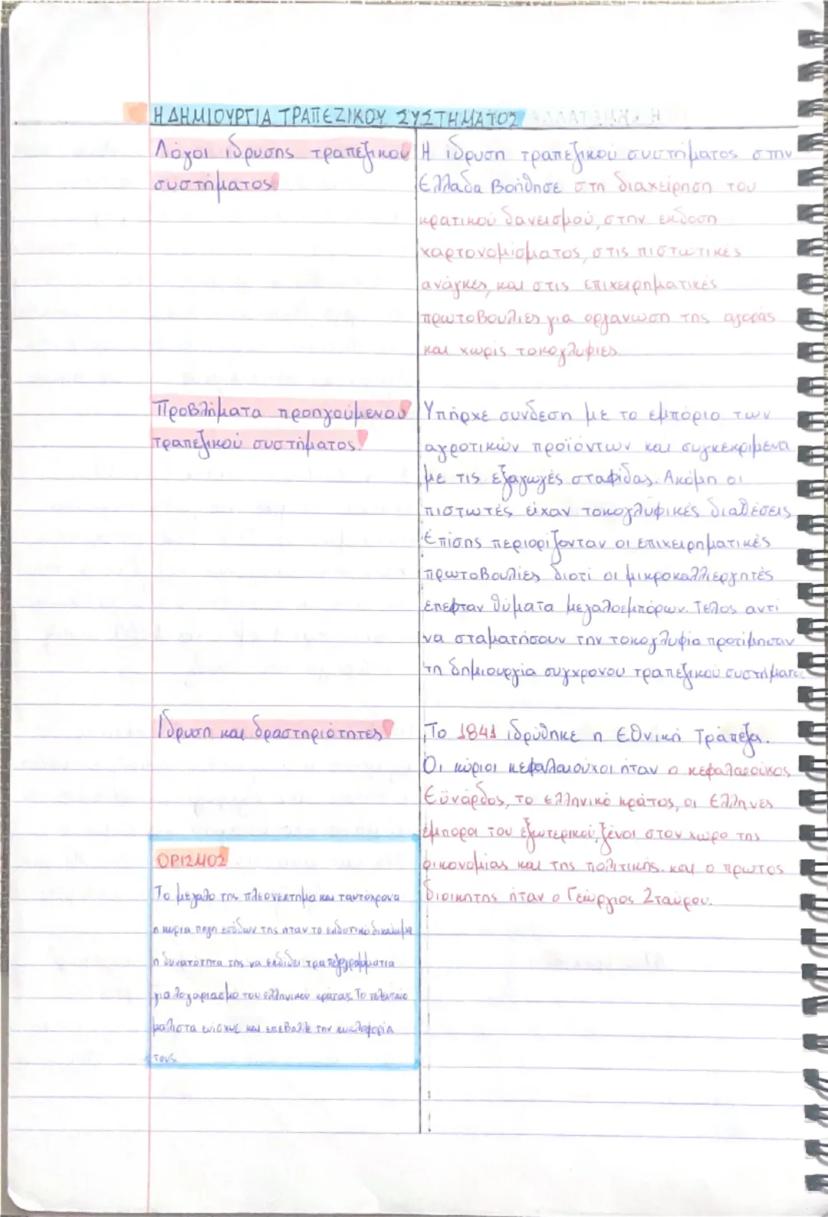 Η ΔΗΜΙΟΥΡΓΙΑ ΤΡΑΠΕΖΙΚΟΥ ΣΥΣΤΗΜΑΤΟΣ
Λόγοι ίδρυσης τραπεζικού
συστήματος
Η ίδρυση τραπεζικού συστήματος στην
Ελλάδα βοήθησε στη διαχείρηση του
κρατικού δανεισμού, στην έκδοση
χαρτονομίσματος, στις πιστωτικές
ανάγκες, και στις επιχειρηματικές
πρωτοβουλίες για οργάνωση της αγοράς
και χωρίς τοκογλυφίες.
Προβλήματα προηγούμενου
τραπεζικού συστήματος
Υπήρχε σύνδεση με το εμπόριο των
αγροτικών προϊόντων και συγκεκριμένα
με τις εξαγωγές σταφίδας. Ακόμη οι
πιστωτές είχαν τοκογλυφικές διαθέσεις
Επίσης περιορίζονταν οι επιχειρηματικές
πρωτοβουλίες διότι οι μικροκαλλιεργητές
έπεφταν θύματα μεγαλοεμπόρων. Τέλος αντί
να σταματήσουν την τοκογλυφία προτίμησαν
τη δημιουργία σύγχρονου τραπεζικού συστήματος
Ίδρυση και δραστηριότητες
Το 1841 ιδρύθηκε η Εθνική Τράπεζα.
Οι κύριοι κεφαλαιούχοι ήταν ο κεφαλαιούχος
Εϋνάρδος, το ελληνικό κράτος, οι Έλληνες
έμποροι του εξωτερικού, ξένοι στον χώρο της
οικονομίας και της πολιτικής. και ο πρώτος
διοικητής ήταν ο Γεώργιος Σταύρου.
ΟΡΙΣΜΟΣ
Το μεγάλο της πλεονέκτημα και ταυτόχρονα
η κύρια πηγή εσόδων της ήταν το εκδοτικό δικαίωμα
η δυνατότητα της να εκδίδει τραπεζογραμμάτια
για λογαριασμό του ελληνικού κράτους. Το τελευταίο
μάλιστα ενίσχυε και επέβαλλε την κυκλοφορία
τους.